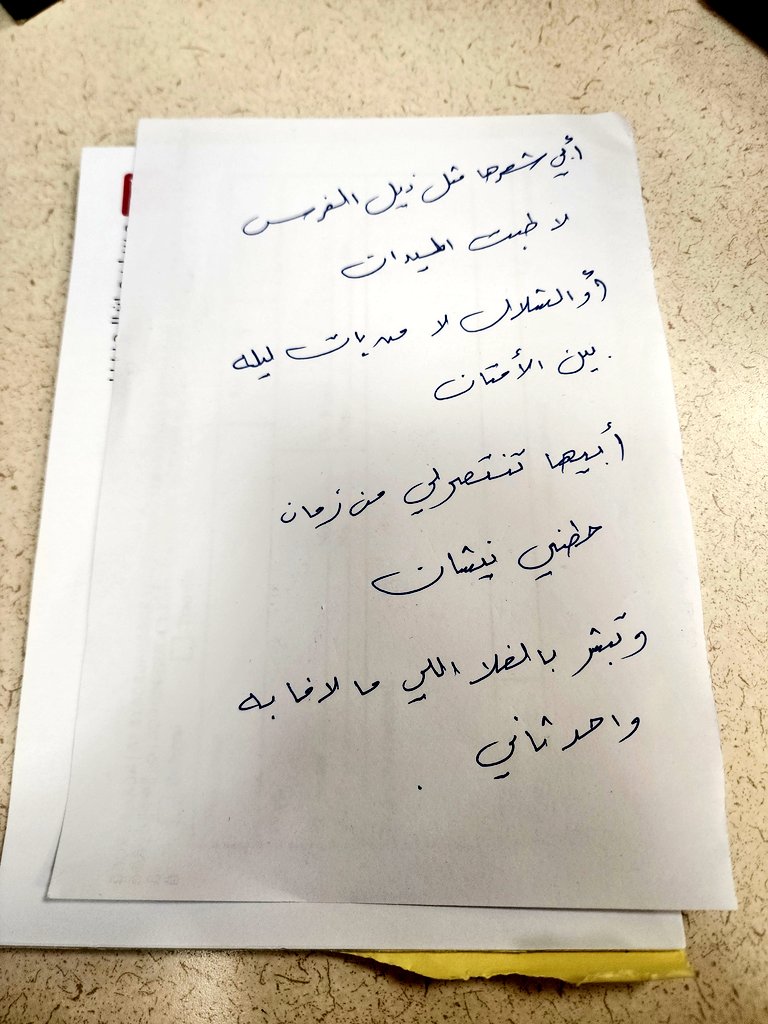 أبي شعرها مثل ذيل الفرس
لا طبت الميدان
أو الشلال لا من بات ليله
بين الأمتان
أبيها تنتصرلي من زمان
حطني نيشان
وتبشر بالغلا اللي ما لافا به
واحد ثاني